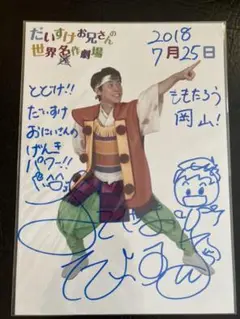 だいすけお兄さんの
世界名作劇場
2018
7月25日
とどけ!!
だいすけ
おにいさんの
げんき
パワー!!
ももたろう
岡山!